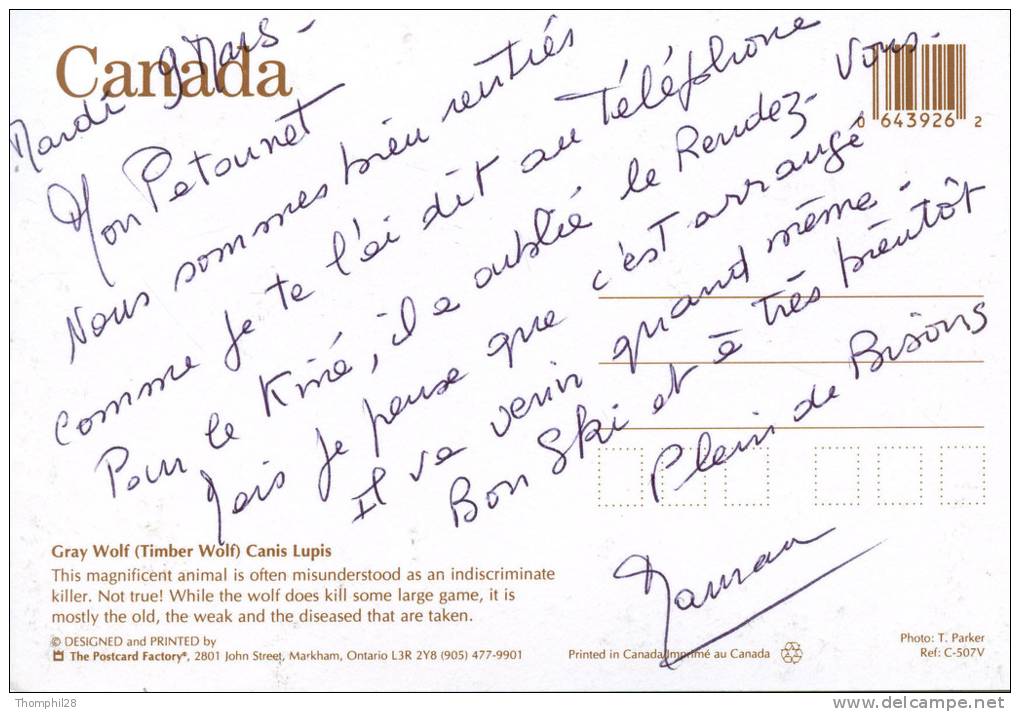 Canada
Mardi 9 Mars -
Mon Petounet
Nous sommes bien rentrés
comme je te l'ai dit au téléphone
Pour le Kiné, il a oublié le Rendez-vous.
Mais je pense que c'est arrangé
Il va venir quand même.
Bon Ski et à très bientôt
Plein de Bisous
Maman
0 643926 2
Gray Wolf (Timber Wolf) Canis Lupis
This magnificent animal is often misunderstood as an indiscriminate
killer. Not true! While the wolf does kill some large game, it is
mostly the old, the weak and the diseased that are taken.
© DESIGNED and PRINTED by
The Postcard Factory®, 2801 John Street, Markham, Ontario L3R 2Y8 (905) 477-9901
Printed in Canada/Imprimé au Canada
Photo: T. Parker
Ref: C-507V
Thomphil28
www.delcampe.net